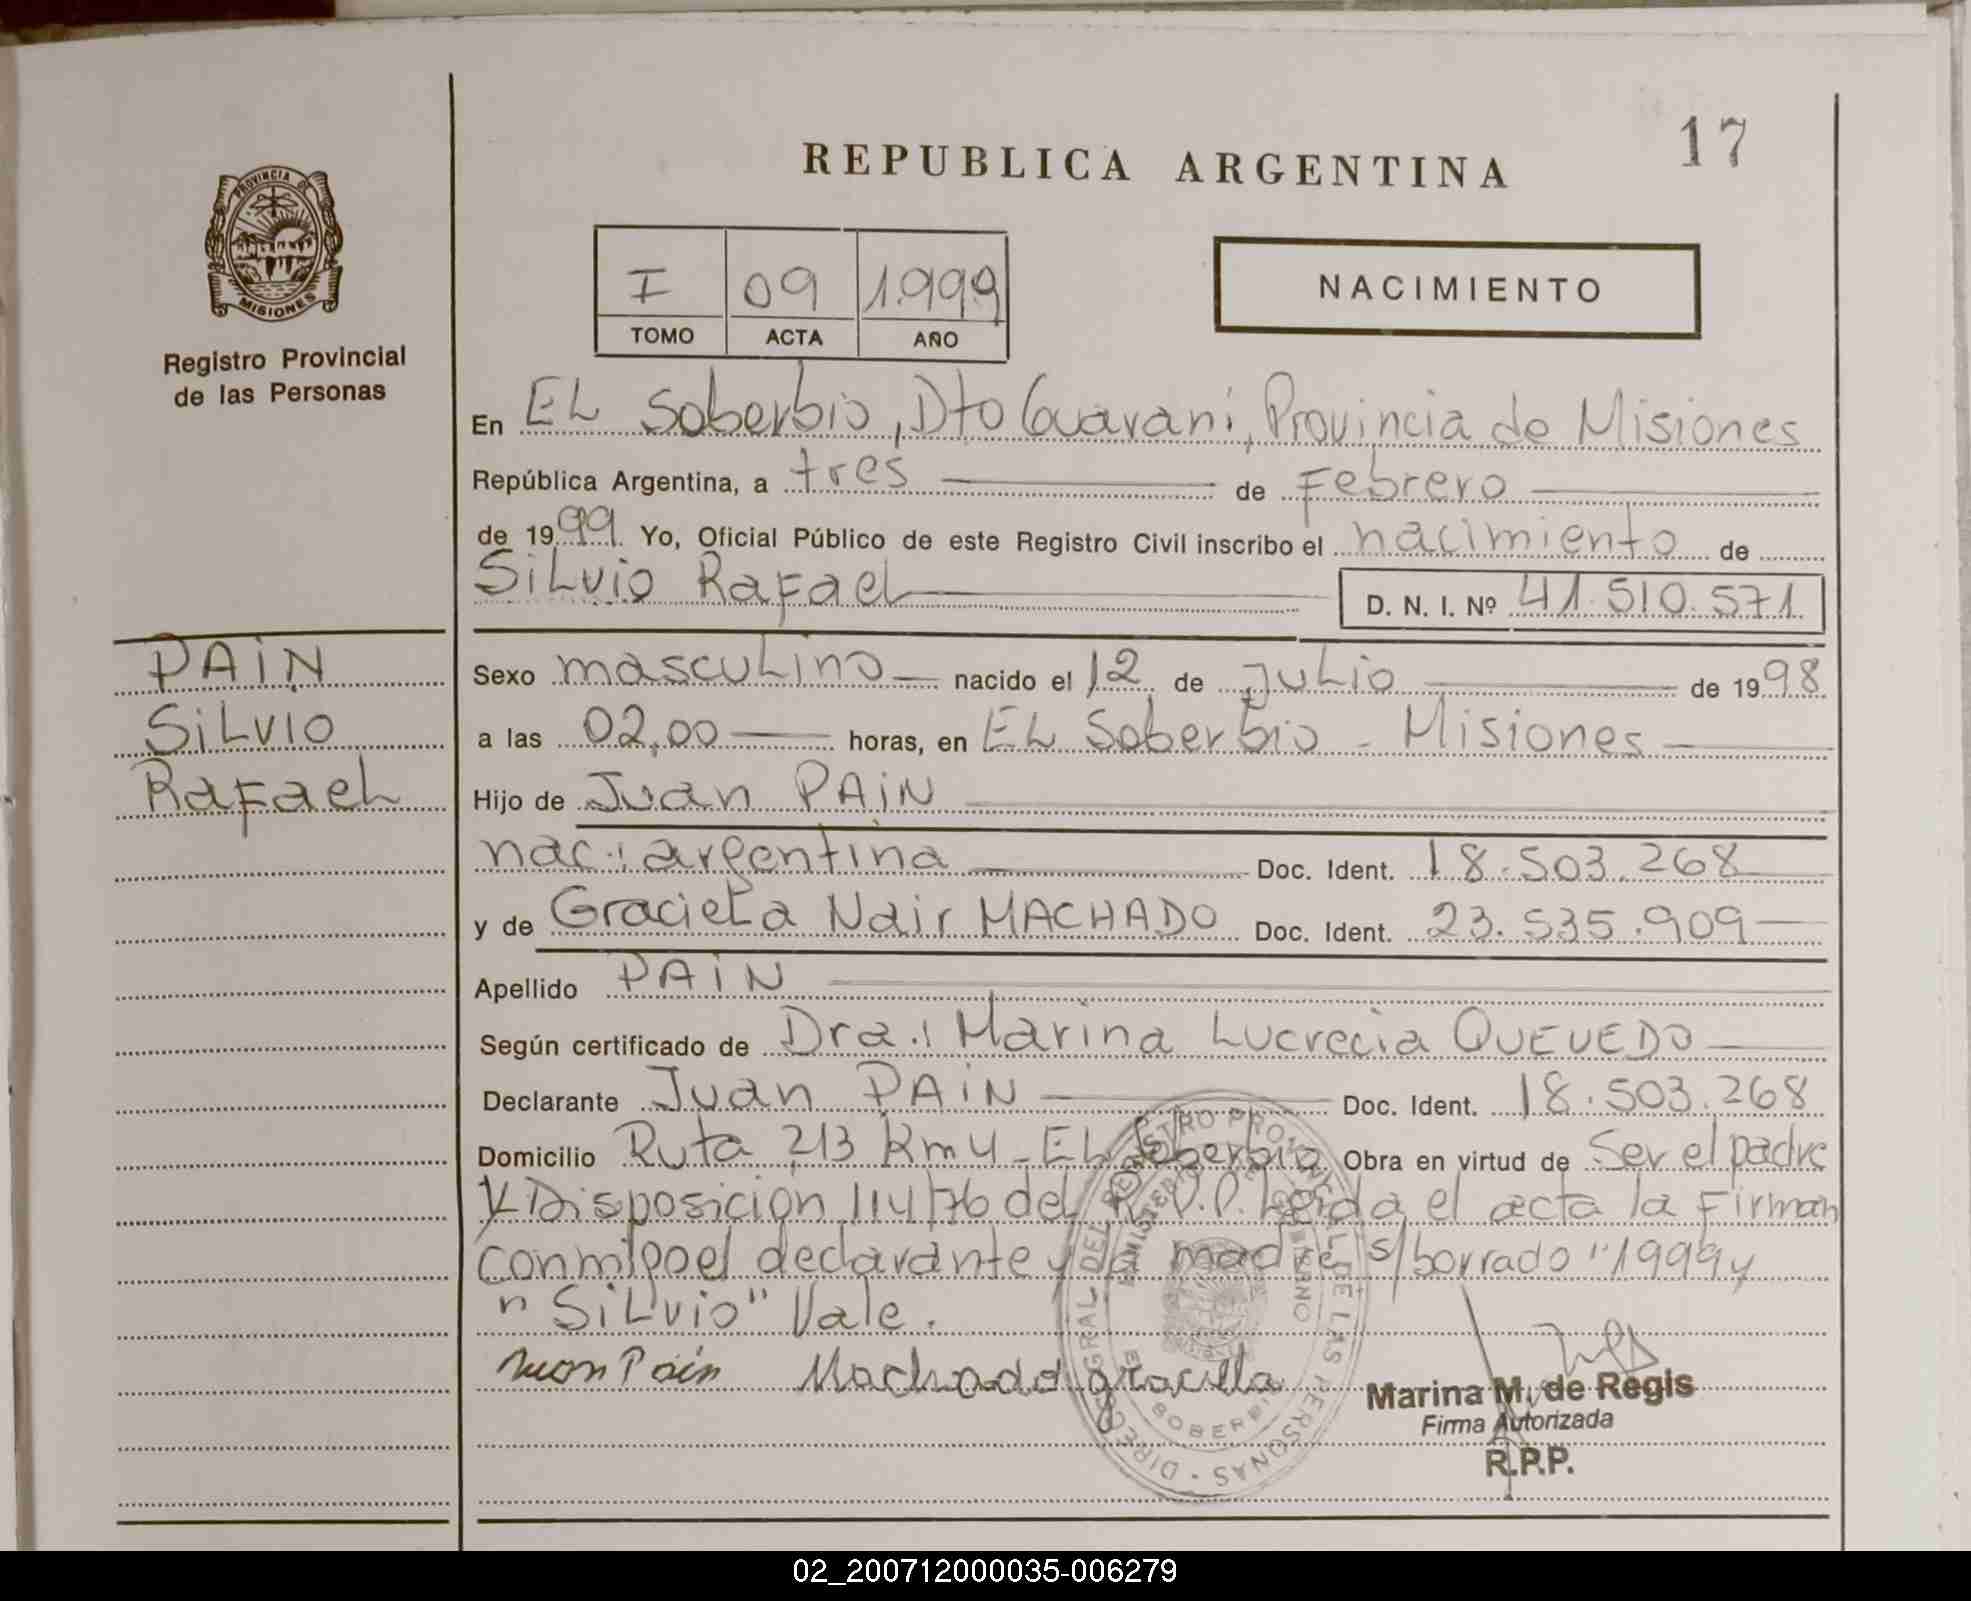 17
REPUBLICA ARGENTINA
PROVINCIA DE
MISIONES
Registro Provincial
de las Personas
I 09 1.999
TOMO ACTA AÑO
NACIMIENTO
En EL Soberbio, Dto Guarani, Provincia de Misiones
República Argentina, a tres de Febrero
de 1999. Yo, Oficial Público de este Registro Civil inscribo el nacimiento de
SiLvio RaFaeL D. N. I. Nº 41.510.571
PAiN
SiLVIO
RaFaeL
Sexo mascuLino nacido el 12 de JuLio de 1998
a las 02,00 horas, en EL Soberbio - Misiones
Hijo de Juan PAiN
nac.: argentina Doc. Ident. 18.503.268
y de GracieLa Nair MACHADO Doc. Ident. 23.535.909
Apellido PAiN
Según certificado de Dra.: Marina Lucrecia QUEVEDO
Declarante Juan PAiN Doc. Ident. 18.503.268
Domicilio Ruta 213 Km 4 - EL Soberbio Obra en virtud de Ser el padre
Y Disposición 114/76 del R.P.P. Leida el acta la Firman
conmigo el declarante y la madre s/borrado "1999 y
"SiLvio" Vale.
Juan Pain Machado graciela
Marina M. de Regis
Firma Autorizada
R.P.P.
DIREC. GRAL. DEL REGISTRO PROVINCIAL DE LAS PERSONAS
MINISTERIO DE GOBIERNO
EL SOBERBIO
02_200712000035-006279